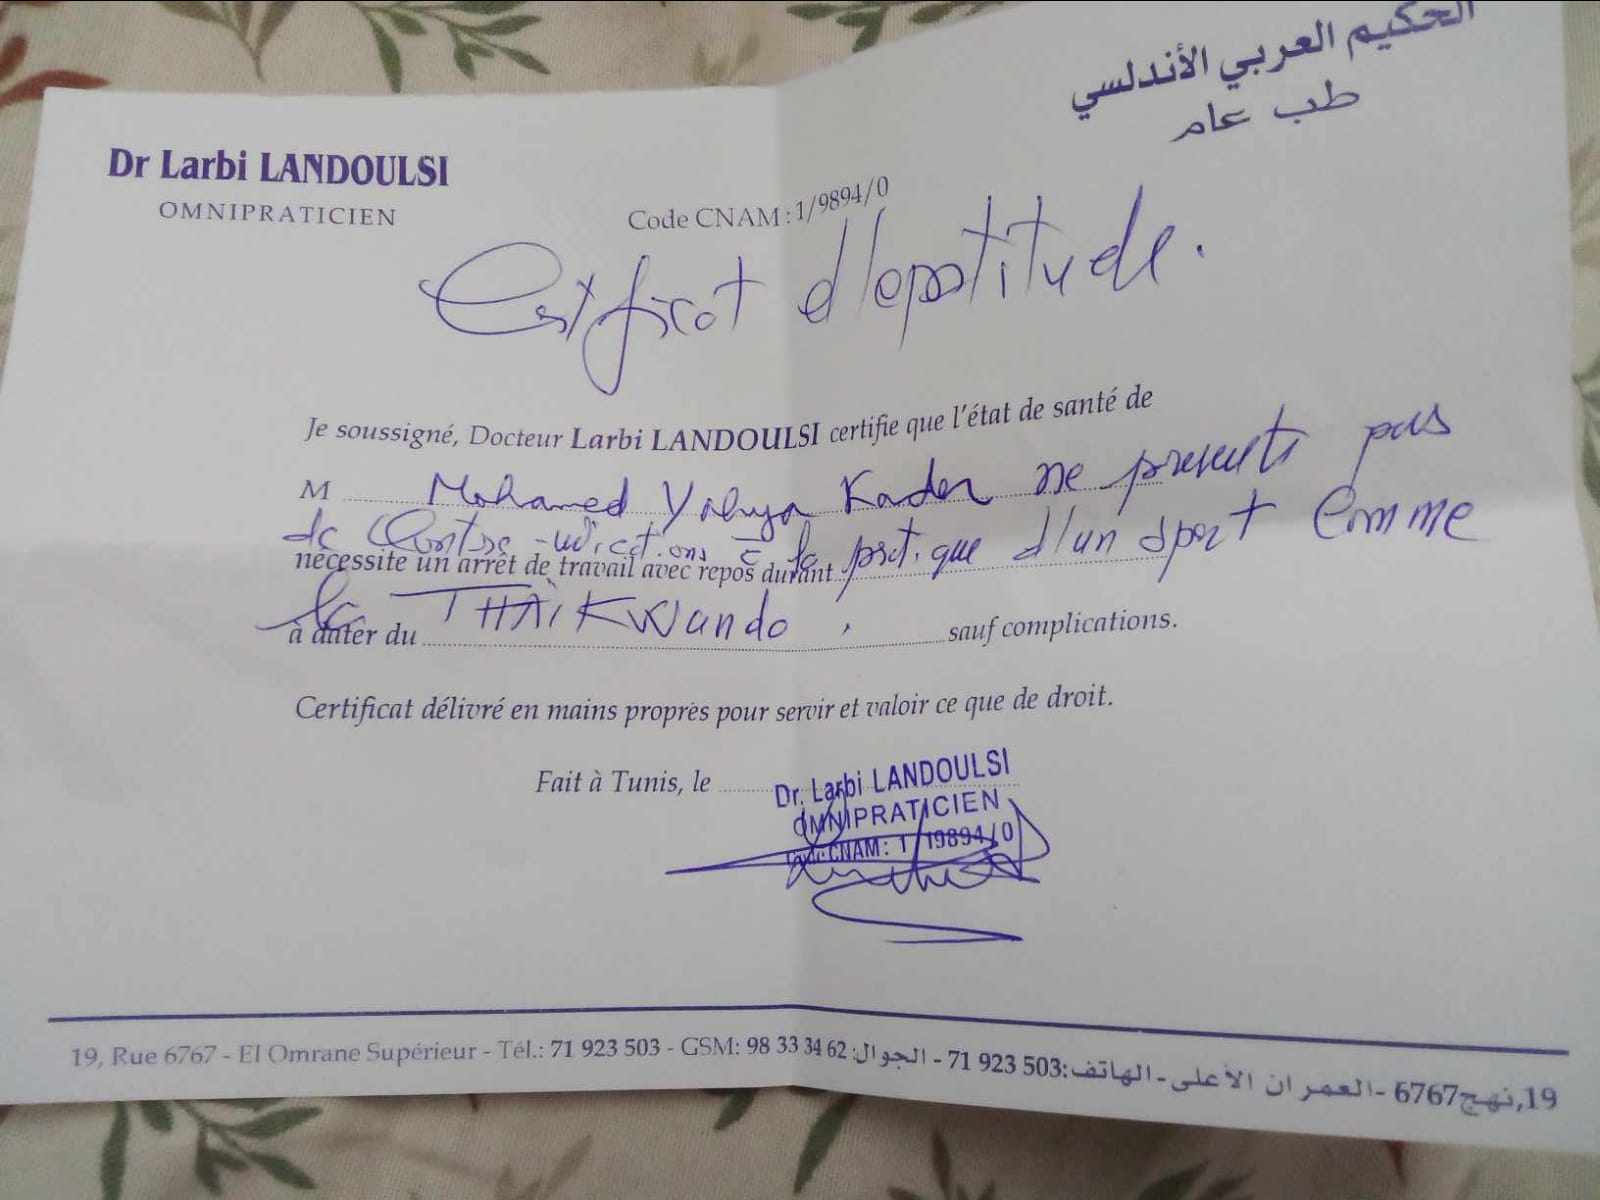 الحكيم العربي الأندلسي
طب عام
Dr Larbi LANDOULSI
OMNIPRATICIEN
Code CNAM : 1/9894/0
Certificat d'apptitude.
Je soussigné, Docteur Larbi LANDOULSI certifie que l'état de santé de
M Mohamed Yahya Kader ne presente pas
de Contre-indications à la pratique d'un sport comme
nécessite un arrêt de travail avec repos durant
le THAÏKWando,
à dater du sauf complications.
Certificat délivré en mains propres pour servir et valoir ce que de droit.
Fait à Tunis, le
Dr. Larbi LANDOULSI
OMNIPRATICIEN
Code CNAM : 1/19894/0
19, Rue 6767 - El Omrane Supérieur - Tél.: 71 923 503 - GSM: 98 33 34 62 :الجوال - 71 923 503:الهاتف - العمران الأعلى - 6767 نهج ,19